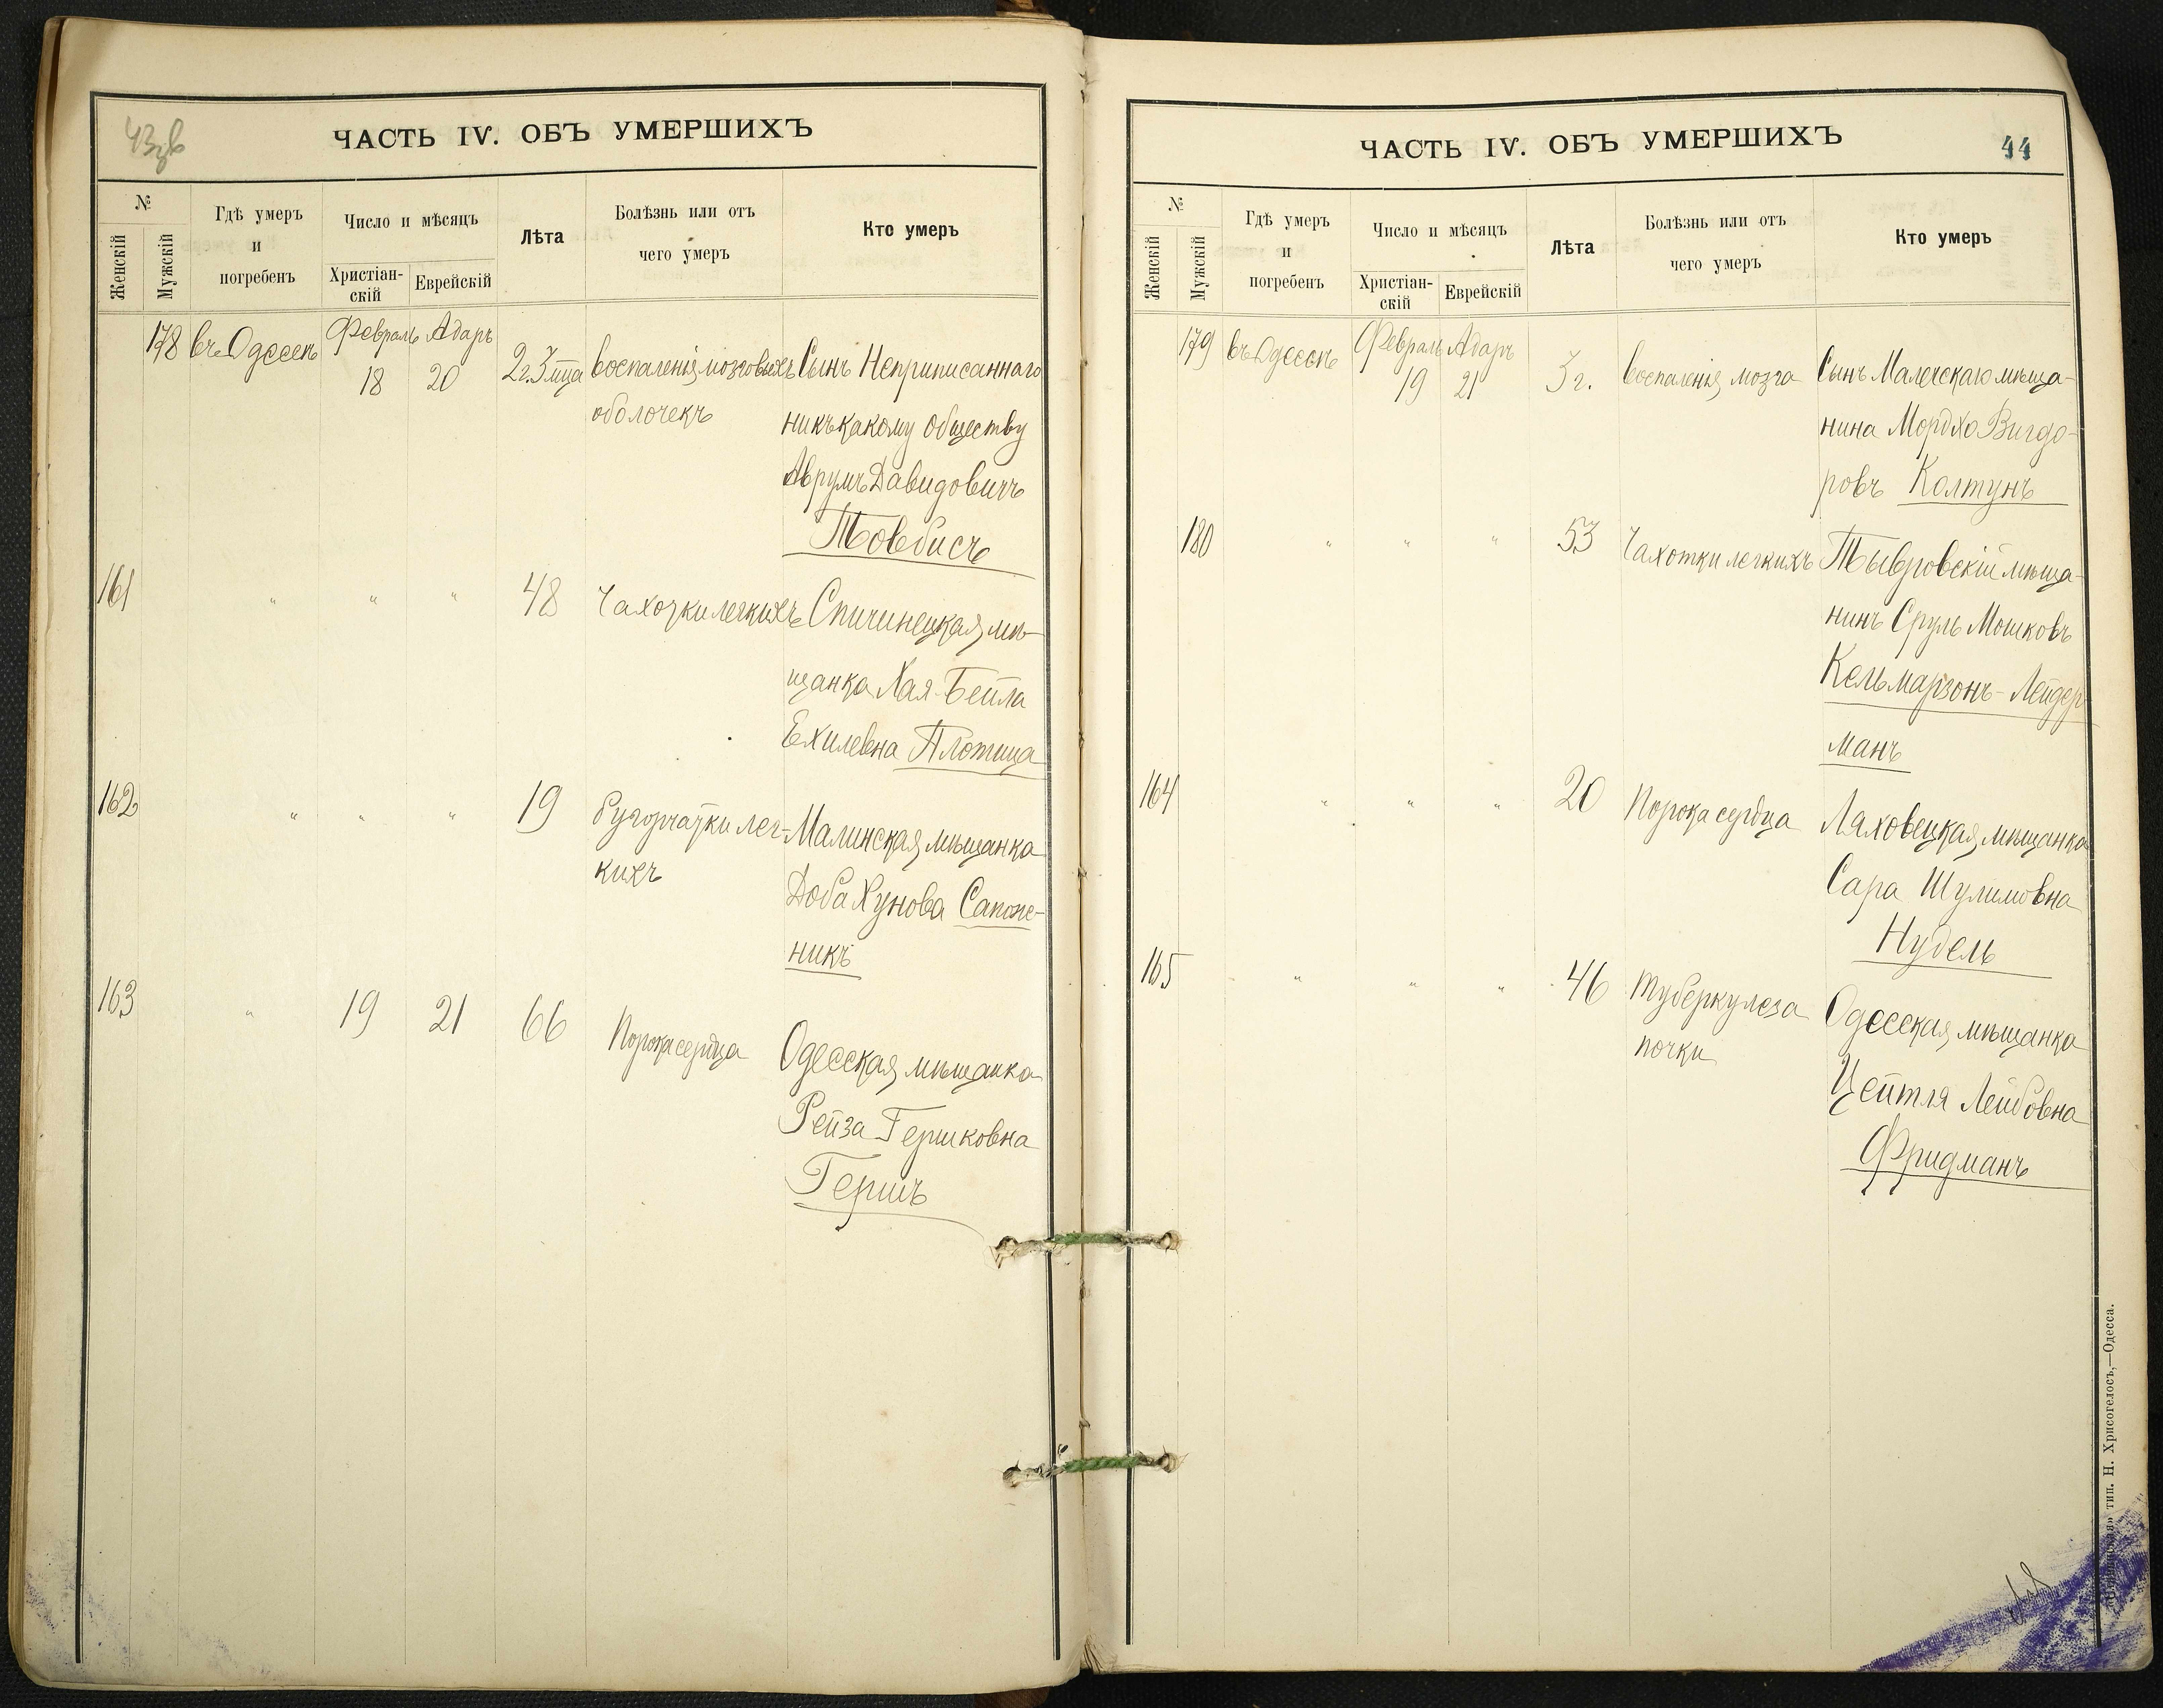 43зв
ЧАСТЬ IV. ОБЪ УМЕРШИХЪ
№
Женскій
Мужскій
Гдѣ умеръ
и
погребенъ
Число и мѣсяцъ
Христіан-
скій
Еврейскій
Лѣта
Болѣзнь или отъ
чего умеръ
Кто умеръ
178 въ Одессѣ Февраль Адаръ
18 20 2г. 3 мца воспаленія мозговыхъ Сынъ Неприписаннаго
оболочекъ никъ какому обществу
Аврумъ Давидовичъ
Товбисъ
161 " " " 48 Чахотки легкихъ Спичинецкая мѣ-
щанка Хая-Бейла
Ехилевна Плотица
162 " " " 19 бугорчатки лег- Малинская мѣщанка
кихъ Доба Хунова Сапож-
никъ
163 " 19 21 66 Порока сердца Одесская мѣщанка
Рейза Гершковна
Гершъ
ЧАСТЬ IV. ОБЪ УМЕРШИХЪ
44
№
Женскій
Мужскій
Гдѣ умеръ
и
погребенъ
Число и мѣсяцъ
Христіан-
скій
Еврейскій
Лѣта
Болѣзнь или отъ
чего умеръ
Кто умеръ
179 въ Одессѣ Февраль Адаръ
19 21 3 г. воспаленія мозга Сынъ Малечскаго мѣща-
нина Мордхо Вигдо-
ровъ Колтунъ
180 " " " 53 Чахотки легкихъ Тывровскій мѣща-
нинъ Сруль Мошковъ
Кельмарзонъ-Лейдер-
манъ
164 " " " 20 Порока сердца Ляховецкая мѣщанка
Сара Шулимовна
Нудель
165 " " " 46 Туберкулеза Одесская мѣщанка
почки Цейтля Лейбовна
Фридманъ
тип. Н. Хрисогелосъ,—Одесса.